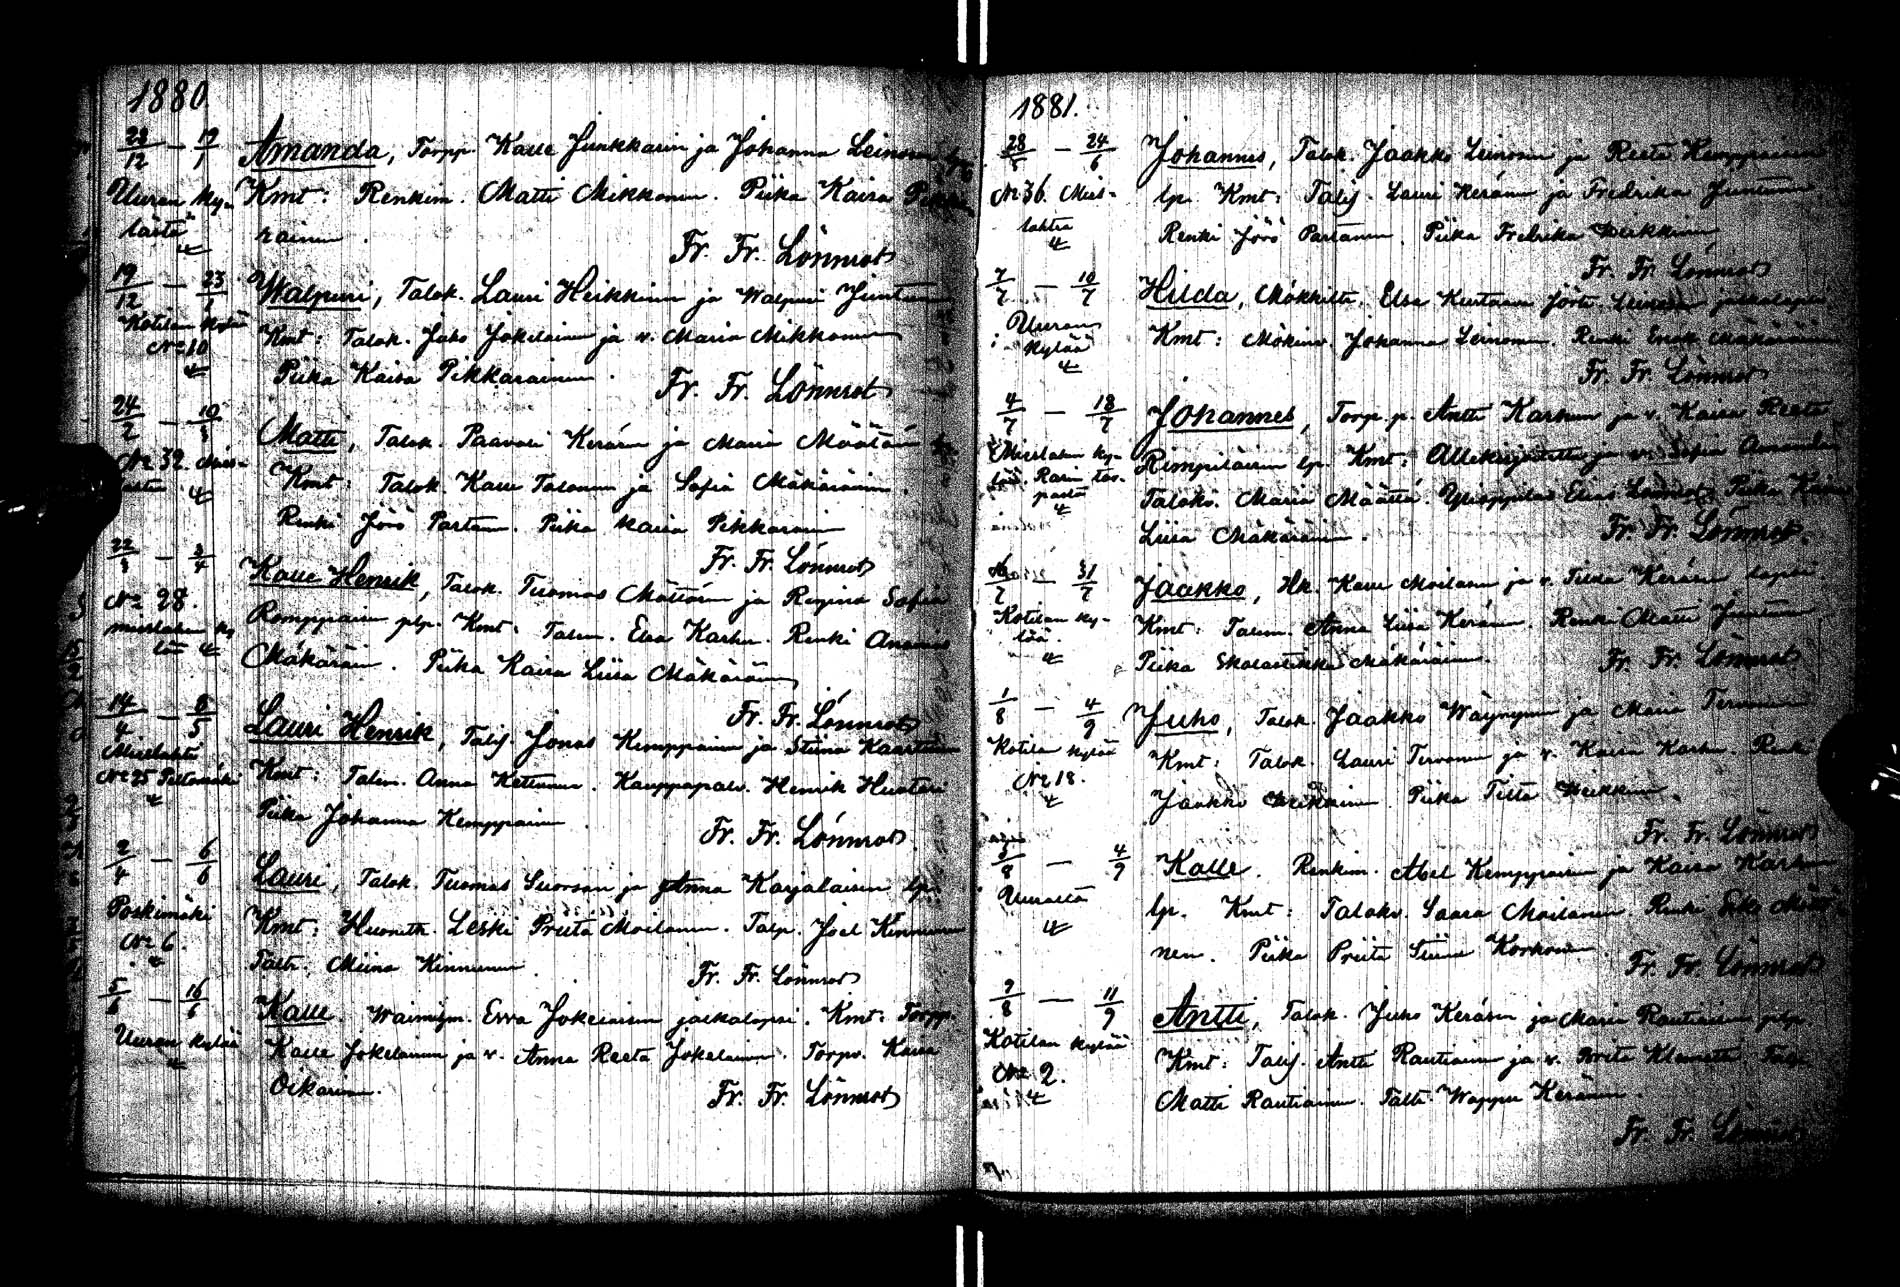 1880
23/12 — 19/1 Amanda, Torpp. Kalle Junkkarin ja Johanna Leinosen lps
Uuran ky- Kmt: Renkim. Matti Mikkonen. Piika Kaisa Pikka-
lästä rainen.
4 Fr. Fr. Lönnrot
19/12 — 23/1 Walpuri, Talok. Lauri Heikkinen ja Walpuri Juntunen
Kotilan kylä Kmt: Talok. Juho Jokelainen ja v. Maria Mikkonen
No 10 Piika Kaisa Pikkarainen.
4 Fr. Fr. Lönnrot
24/2 — 10/3 Matti, Talok. Paavali Keräsen ja Maria Määtän
No 32. Mies- Kmt: Talok. Kalle Talonen ja Sofia Mäkäräinen.
4 Renki Jörö Partanen. Piika Kaisa Pikkarainen
Fr. Fr. Lönnrot
22/3 — 3/4 Kalle Henrik, Talok. Tuomas Määttäsen ja Regina Sofia
No 28. Romppaisen plp. Kmt: Talen. Elsa Karhu. Renki Ananias
mieslahen ky- Mäkäräinen. Piika Kaisa Liisa Mäkäräinen
län 4 Fr. Fr. Lönnrot
14/4 — 8/5 Lauri Henrik, Talij. Jonas Kemppainen ja Stiina Kaartinen
Mieslahti Kmt: Talen. Anna Kettunen. Kauppapalv. Henrik Huotari
No 25 Peltomäki Piika Johanna Kemppainen
4 Fr. Fr. Lönnrot
2/4 — 6/6 Lauri, Talok. Tuomas Suorsan ja Anna Karjalaisen lps.
Poskimäki Kmt: Huoneth. Leski Priita Moilanen. Talp. Joel Kinnunen
No 6. Taltr. Miina Kinnunen.
4 Fr. Fr. Lönnrot
5/6 — 16/6 Kalle. Waimoym. Eeva Jokelaisen jalkalapsi. Kmt: Torpp.
Uuran kylää Kalle Jokelainen ja v. Anna Reeta Jokelainen. Torpv. Kaisa
4 Oikarinen.
Fr. Fr. Lönnrot
1881.
28/5 — 24/6 Johannes, Talok. Jaakko Leinonen ja Reeta Kemppaisen
No 36. Mies- lp. Kmt: Talij. Lauri Keränen ja Fredrika Juntunen
lahtea Renki Jörö Partanen. Piika Fredrika Heikkinen
4 Fr. Fr. Lönnrot
7/7 — 10/7 Hilda, Mökkiltr. Elsa Kurtosen jalkalapsi
Uuran Kmt: Mökinv. Johanna Leinonen. Renki Enok Mäkäräinen
kylää Fr. Fr. Lönnrot
4
4/7 — 18/7 Johannes, Torp.p. Antti Karhun ja v. Kaisa Reeta
Mieslahen ky- Rimpiläisen lp. Kmt: ja v. Sofia Amanda
tor- Talokv. Maria Määttä. Ylioppilas Elias Lönnrot. Piika Kaisa
pasta Liisa Mäkäräinen.
4 Fr. Fr. Lönnrot.
31/7 Jaakko, Hk. Kalle Moilasen ja v. Tilda Keräsen lapsi.
Kotilan ky- Kmt: Talen. Anna Liisa Keränen. Renki Matti Juntunen
lää. Piika Skolastikka Mäkäräinen.
4 Fr. Fr. Lönnrot
1/8 — 4/9 Juho, Talok. Jaakko Wäyrynen ja Maria Tervonen
Kotila kylää Kmt: Talok. Lauri Tervonen ja v. Kaisa Karhu. Renki
No 18. Jaakko Heikkinen. Piika Tilta Heikkinen.
4 Fr. Fr. Lönnrot
5/8 — 4/9 Kalle. Renkim. Abel Kemppaisen ja Kaisa Karhun
Uuralta lp. Kmt: Talokv. Saara Moilanen. Renki
4 nen. Piika Priita Stiina Korhonen.
Fr. Fr. Lönnrot
7/8 — 11/9 Antti, Talok. Juho Keräsen ja Maria Rautiaisen
Kotilan kylää Kmt: Talij. Antti Rautiainen ja v. Priita Klemetti. Talp.
No 2. Matti Rautiainen. Taltr. Wappu Keränen.
4 Fr. Fr. Lönnrot